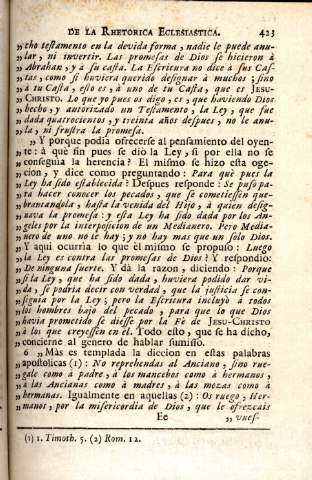 DE LA RHETORICA ECLESIASTICA. 423
„cho testamento en la devida forma, nadie le puede anu-
„lar, ni invertir. Las promesas de Dios se hicieron à
„Abrahan, y à su casta. La Escritura no dice à sus Cas-
„tas, como si huviera querido designar à muchos; sino
„à tu Casta, esto es, à uno de tu Casta, que es JESU-
„CHRISTO. Lo que yo pues os digo, es, que haviendo Dios
„hecho, y autorizado un Testamento, la Ley, que fue
„dada quatrocientos, y treinta años despues, no le anu-
„la, ni frustra la promesa.
„Y porque podia ofrecerse al pensamiento del oyen-
„te: à qué fin pues se diò la Ley, si por ella no se
„conseguia la herencia? El mismo se hizo esta oge-
„cion, y dice como preguntando: Para qué pues la
„Ley ha sido establecida? Despues responde: Se puso pa-
„ra hacer conocer los pecados, que se cometiessen que-
„brantandola, hasta la venida del Hijo, à quien desig-
„nava la promesa: y esta Ley ha sido dada por los An-
„geles por la interposicion de un Medianero. Pero Media-
„nero de uno no le hay; y no hay mas que un solo Dios.
„Y aqui ocurria lo que èl mismo se propuso: Luego
„la Ley es contra las promesas de Dios? Y respondio:
„De ninguna suerte. Y dà la razon, diciendo: Porque
„si la Ley, que ha sido dada, huviera podido dar vi-
„da, se podria decir con verdad, que la justicia se con-
„seguia por la Ley; pero la Escritura incluyò à todos
„los hombres bajo del pecado, para que lo que Dios
„havia prometido se diesse por la Fè de JESU-CHRISTO
„à los que creyessen en èl. Todo esto, que se ha dicho,
„concierne al genero de hablar sumisso.
6 „Mas es templada la diccion en estas palabras
„apostolicas (1): No reprehendas al Anciano, sino rue-
„gale como à padre, à los mancebos como à hermanos,
„à las Ancianas como à madres, à las mozas como à
„hermanas. Igualmente en aquellas (2): Os ruego, Her-
„manos, por la misericordia de Dios, que le ofrezcais
Ee „vues-
(1) 1. Timoth. 5. (2) Rom. 12.